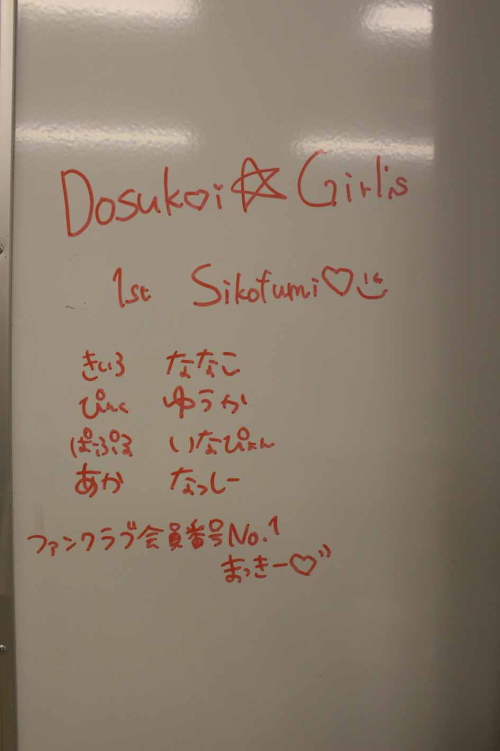 Dosukoi☆Girl's
1st Sikofumi♡
きいろ ななこ
ぴんく ゆうか
ぱぷる いなぴょん
あか なっしー
ファンクラブ会員番号No.1
まっきー♡